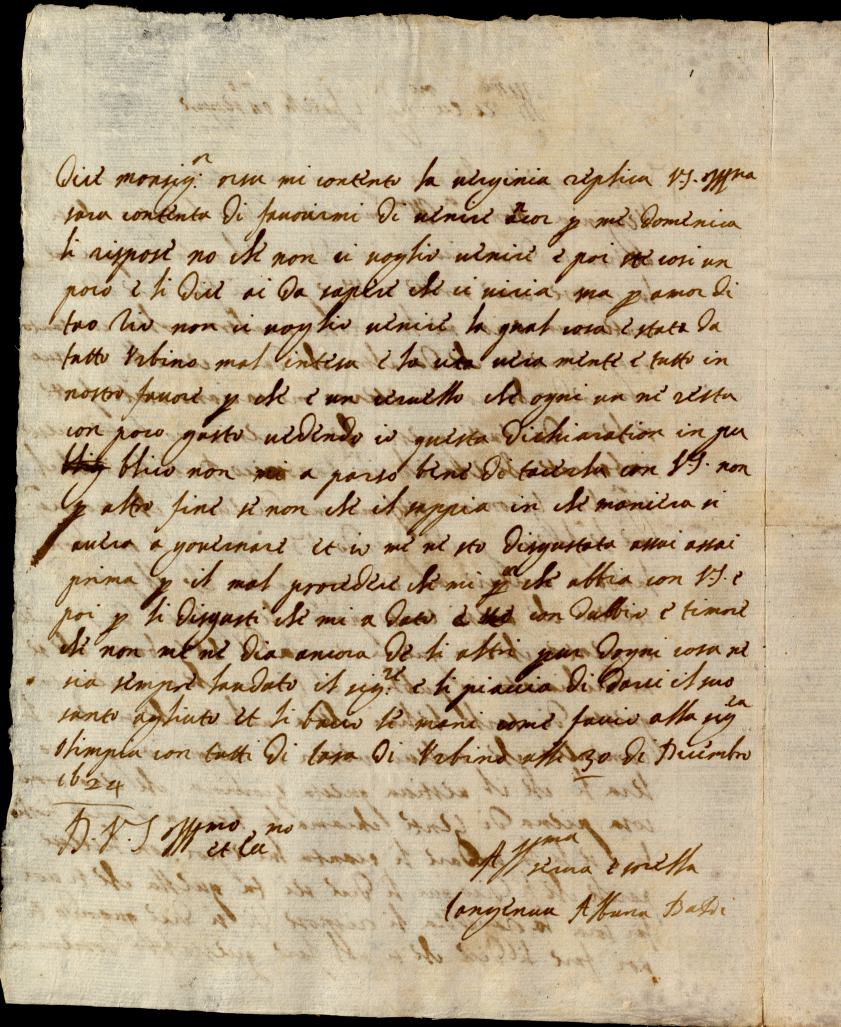 Dice monsig.r orsu mi contento la verginia replica VS. Ill.ma
sara contenta di favorirmi di venire ancor p me domenica
li rispose no che non ci voglio venire e poi ste cosi un
poco e li dice ai da sapere che ci viria ma p amor di
tuo zio non ci voglio venire la qual cosa e stata da
tutto Urbino mal intesa e la veramente e tutto in
nostro favore p che e un cervello che ogni un ne resta
con poco gusto vedendo io questa dichiaration in pu
blico non mi a parso bene di tacerla con VS. non
p altro fine se non che il sappia in che maniera si
avera a governare et io me ne sto disgustata assai assai
prima p il mal procedere che mi par che abbia con VS. e
poi p li disgusti che mi a dato e con dubbio e timore
che non me ne dia ancora de li altri pur dogni cosa ne
sia sempre laudato il sig.re e li piaccia di darci il suo
santo agliuto et li bacio le mani come facio alla sig.ra
Olimpia con tutti di casa di Urbino alli 30 di Decembro
1624
D. V. S
Aff.ma
serva e sorella
Albana Baldi